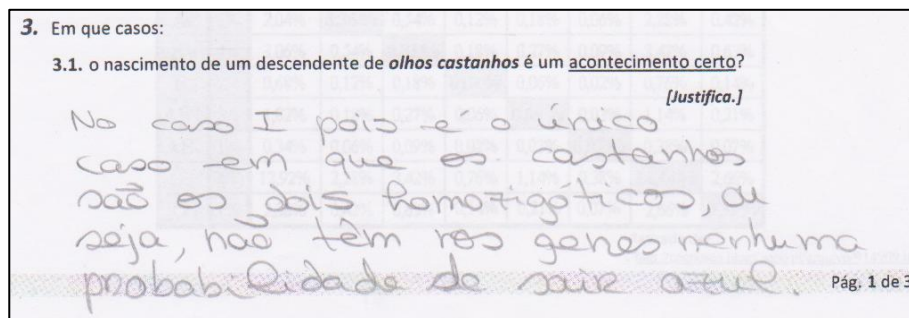 3. Em que casos:
3.1. o nascimento de um descendente de olhos castanhos é um acontecimento certo?
[Justifica.]
No caso I pois é o único
caso em que os castanhos
são os dois homozigóticos, ou
seja, não têm nos genes nenhuma
probabilidade de sair azul.
Pág. 1 de 3